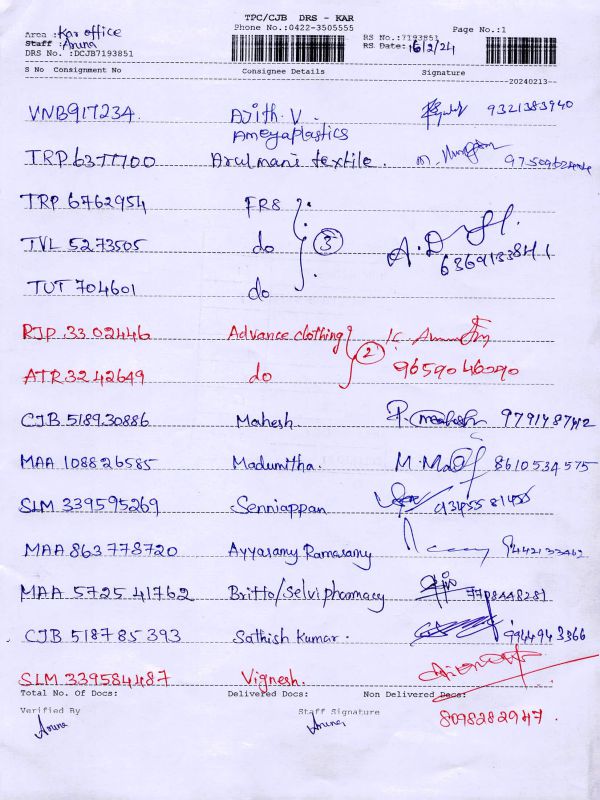 TPC/CJB DRS - KAR
Phone No.:0422-3505555
Page No.:1
Area : Kar office
RS No.:7193851
Staff : Aruna
RS Date: 16/2/24
DRS No. :DCJB7193851
S No Consignment No Consignee Details Signature
20240213
VNB917234 Ajith.V. 9321383940
Ameyaplastics
TRP 6377700 Arulmani textile.
TRP 6762954 FRS
TVL 5273505 do 3 A.D
TUT 704601 do
RJP 3302446 Advance clothing
ATR 3242649 do 2 9659046090
CJB 518930886 Mahesh.
MAA 108826585 Madumitha. 8610534575
SLM 339595269 Senniappan
MAA 863778720 Ayyasamy Ramasamy
MAA 572541762 Britto/Selvi pharmacy 7708448281
CJB 518785393 Sathish Kumar. 9944943366
SLM 339584487 Vignesh.
Total No. Of Docs: Delivered Docs: Non Delivered Docs:
Verified By Staff Signature 8098282947.
Aruna Aruna